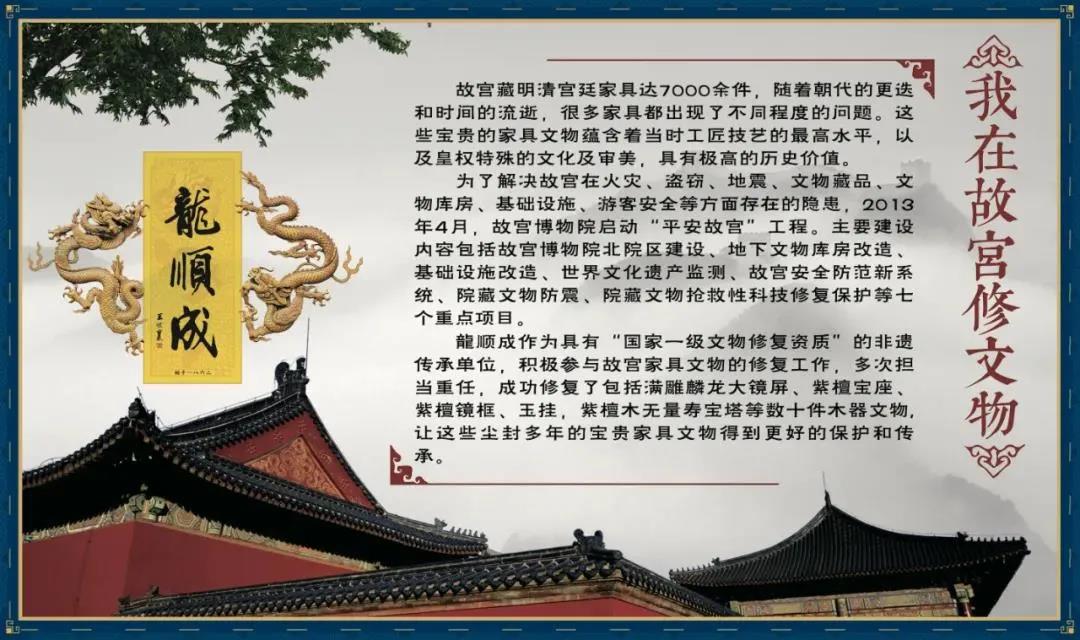 我在故宮修文物
故宫藏明清宫廷家具达7000余件，随着朝代的更迭
和时间的流逝，很多家具都出现了不同程度的问题。这
些宝贵的家具文物蕴含着当时工匠技艺的最高水平，以
及皇权特殊的文化及审美，具有极高的历史价值。
为了解决故宫在火灾、盗窃、地震、文物藏品、文
物库房、基础设施、游客安全等方面存在的隐患，2013
年4月，故宫博物院启动“平安故宫”工程。主要建设
内容包括故宫博物院北院区建设、地下文物库房改造、
基础设施改造、世界文化遗产监测、故宫安全防范新系
统、院藏文物防震、院藏文物抢救性科技修复保护等七
个重点项目。
龍顺成作为具有“国家一级文物修复资质”的非遗
传承单位，积极参与故宫家具文物的修复工作，多次担
当重任，成功修复了包括满雕麟龙大镜屏、紫檀宝座、
紫檀镜框、玉挂，紫檀木无量寿宝塔等数十件木器文物，
让这些尘封多年的宝贵家具文物得到更好的保护和传
承。
龍順成
始于一八六二